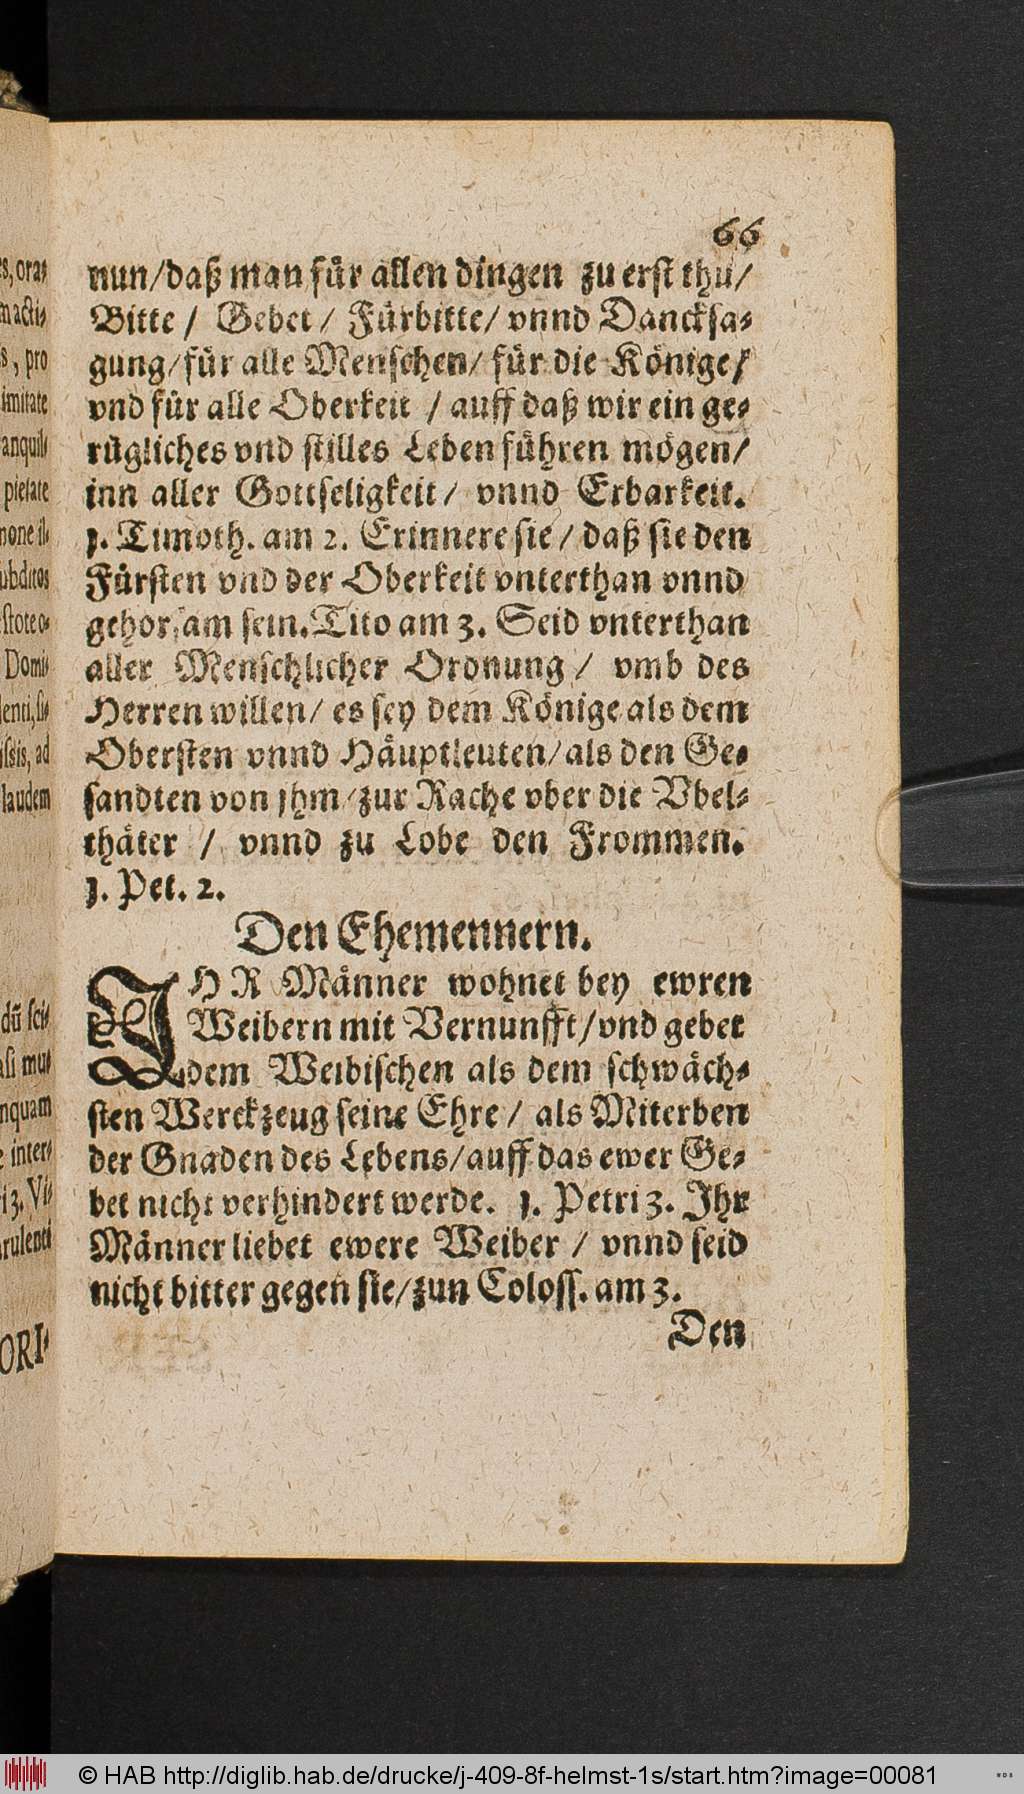 66
nun/daß man für allen dingen zu erst thu/
Bitte / Gebet / Fürbitte/ vnnd Dancksa⸗
gung/für alle Menschen/ für die Könige/
vnd für alle Oberkeit / auff daß wir ein ge⸗
rügliches vnd stilles Leben führen mögen/
inn aller Gottseligkeit/ vnnd Erbarkeit.
1. Timoth. am 2. Erinnere sie / daß sie den
Fürsten vnd der Oberkeit vnterthan vnnd
gehorsam sein. Tito am 3. Seid vnterthan
aller Menschlicher Ordnung / vmb des
Herren willen/ es sey dem Könige als dem
Obersten vnnd Häuptleuten/als den Ge⸗
sandten von jhm/zur Rache vber die Vbel⸗
thäter / vnnd zu Lobe den Frommen.
1. Pet. 2.
Den Ehemennern.
IHR Männer wohnet bey ewren
Weibern mit Vernunfft/vnd gebet
dem Weibischen als dem schwäch⸗
sten Werckzeug seine Ehre / als Miterben
der Gnaden des Lebens/auff das ewer Ge⸗
bet nicht verhindert werde. 1. Petri 3. Ihr
Männer liebet ewere Weiber / vnnd seid
nicht bitter gegen sie/zun Coloss. am 3.
Den
s, ora⸗
s, pro
anquil⸗
pietate
ubditos
Domi⸗
laudem
dū sci⸗
nquam
inter⸗
ri 3. Vi⸗
ORI⸗
© HAB http://diglib.hab.de/drucke/j-409-8f-helmst-1s/start.htm?image=00081